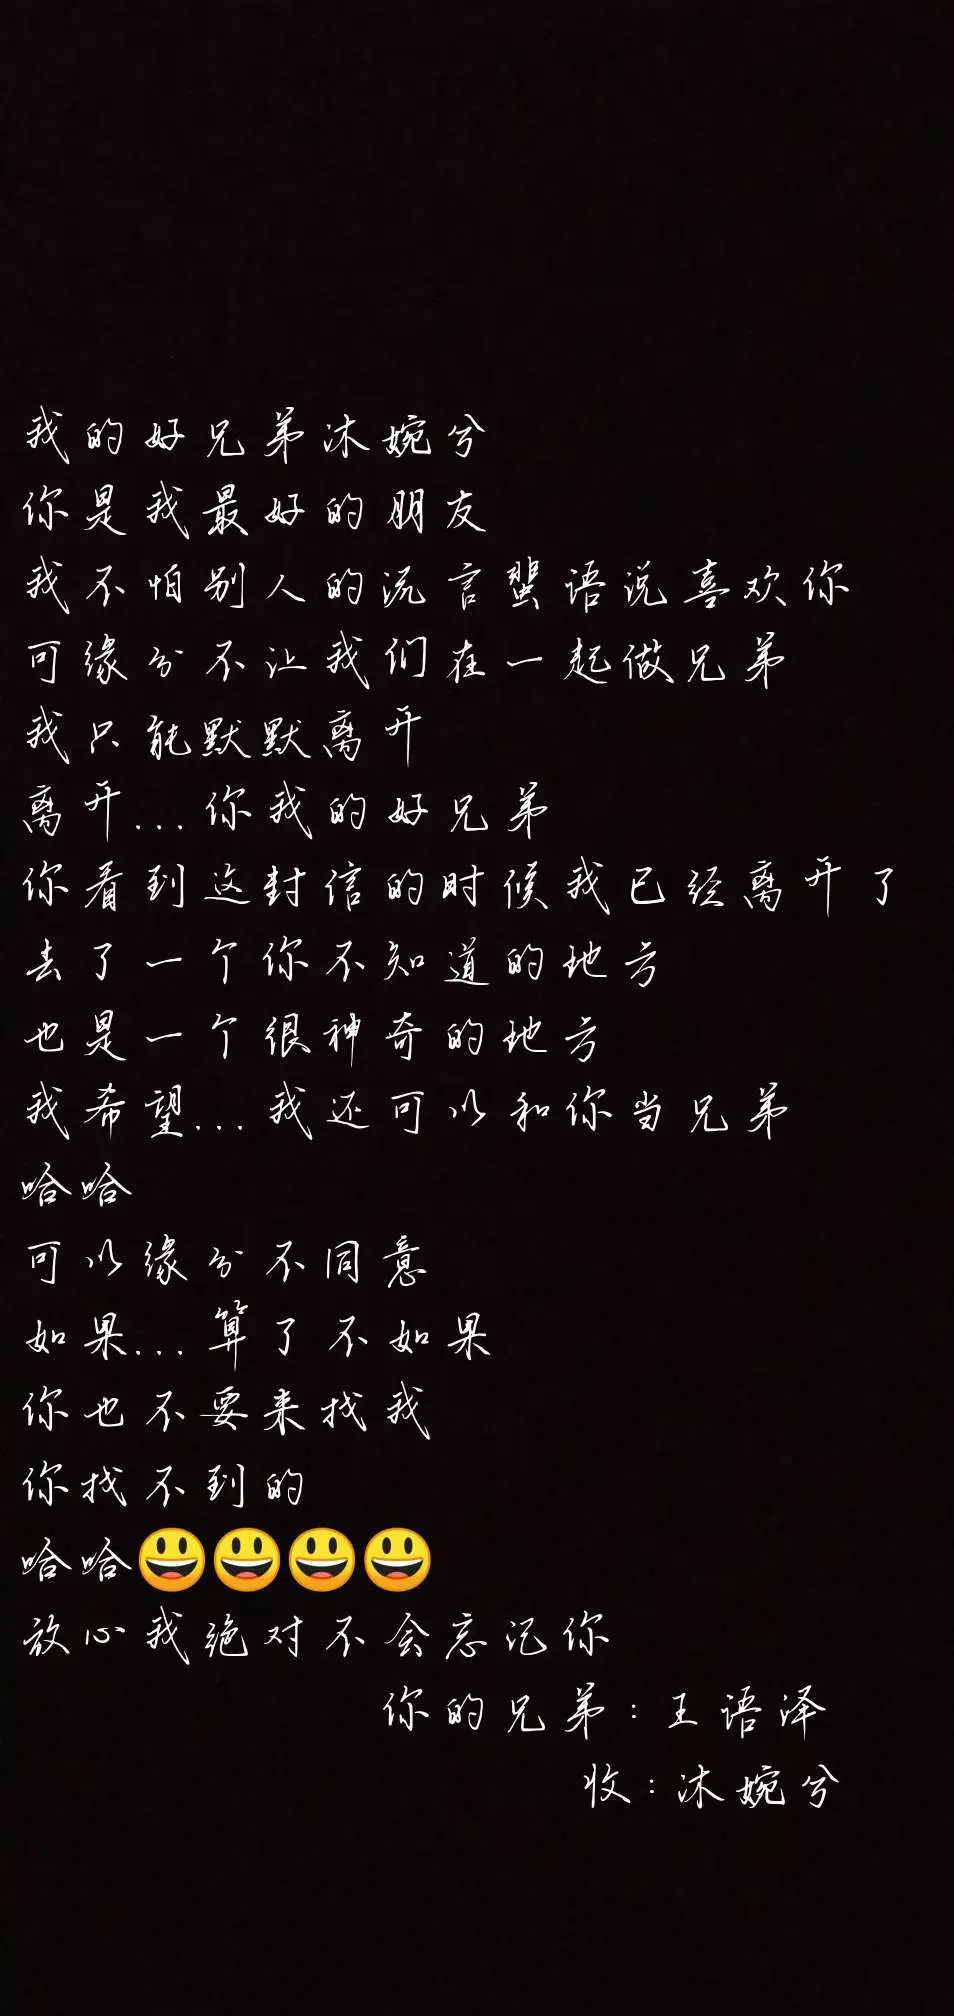 我的好兄弟沐婉兮
你是我最好的朋友
我不怕别人的流言蜚语说喜欢你
可缘分不让我们在一起做兄弟
我只能默默离开
离开...你我的好兄弟
你看到这封信的时候我已经离开了
去了一个你不知道的地方
也是一个很神奇的地方
我希望...我还可以和你当兄弟
哈哈
可以缘分不同意
如果...算了不如果
你也不要来找我
你找不到的
哈哈😃😃😃😃
放心我绝对不会忘记你
你的兄弟:王语泽
收:沐婉兮